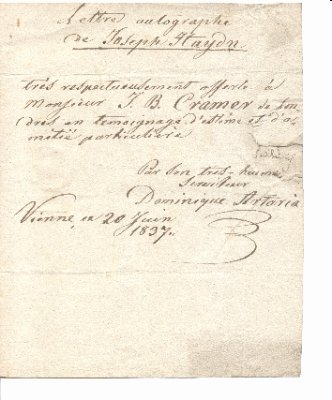 Lettre autographe
de Joseph Haydn.
très respectueusement offerte à
Monsieur J. B. Cramer de Lon
dres en temoignage d'estime et d'a
mitié particulière
Par son très-humb
Serviteur
Dominique Artaria
Vienne, ce 20 Juin
1837.